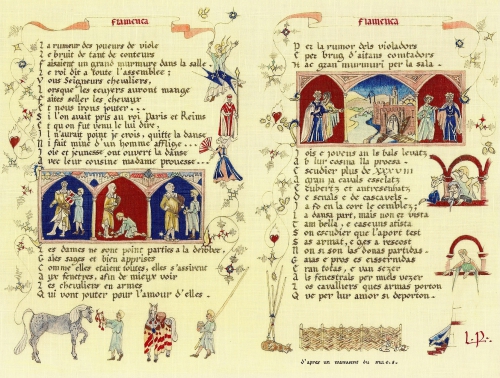 flamenca
La rumeur des joueurs de viole
Le bruit de tant de conteurs
Faisaient un grand murmure dans la salle
Le roi dit a toute l'assemblee :
Vous Seigneurs chevaliers,
Lorsque les ecuyers auront mange
Faites seller les chevaux
Nous irons jouter . . .
Si l'on avait pris au roi Paris et Reims
Et qu'on fut venu le lui dire,
Il n'aurait point je crois, quitte la danse
Ni fait mine d'un homme afflige . . .
Joie et jeunesse ont ouvert la danse
Avec leur cousine madame prouesse . . .
Les dames ne sont point parties a la
Gaies sages et bien apprises
Comme elles etaient toutes, elles s'assirent
Aux fenetres, afin de mieux voir
Les chevaliers en armes
Qui vont jouter pour l'amour d'elles .
flamenca
Per la rumor dels violadors
E per brug d'aitans comtadors
Hac gran murmuri per la sala .
Jois e jovens an los bals levatz
Ab lur cosina Na proesa .
Escudier plus de XXXVIII
Aran ja cavals esselatz
E de senals e de cascavels .
La dansa part, mais non es vista
Tam bella, e cascuns asista
Son escudier que l'aport test
Sas armas, e ges a rescost
Non o si son las donas partidas .
Gaias e pros es eissernidas
Eran totas, e van sezer
Als fenestrals per miels vezer
Los cavalliers ques armas porton
Que per lur amor si deporton .
L.P.
d'apres un manuscrit du